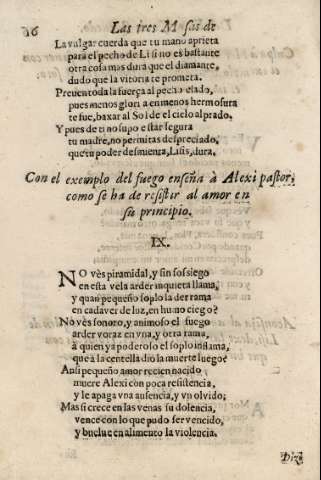 96 Las tres Musas de
La vulgar cuerda que tu mano aprieta
para el pecho de Lisi no es bastante
otra cosa mas dura que el diamante,
dudo que la vitoria te prometa.
Preuen toda la fuerça al pecho elado,
pues menos gloria en menos hermosura
te fue, baxar al Sol de el cielo al prado.
Y pues de ti no supo estar segura
tu madre, no permitas despreciado,
que tu poder desmienta, Lisis, dura.
Con el exemplo del fuego enseña à Alexi pastor,
como se ha de resistir al amor en
su principio.
IX.
NO vès piramidal, y sin sossiego
en esta vela arder inquieta llama,
y quan pequeño soplo la derrama
en cadaver de luz, en humo ciego?
No vès sonoro, y animoso el fuego
arder voraz en vna, y otra rama,
à quien ya poderoso el soplo inflama,
que à la centella dio la muerte luego?
Ansi pequeño amor recien nacido
muere Alexi con poca resistencia,
y le apaga vna ausencia, y vn olvido;
Mas si crece en las venas su dolencia,
vence con lo que pudo ser vencido,
y buelue en alimento la violencia.
Dizè